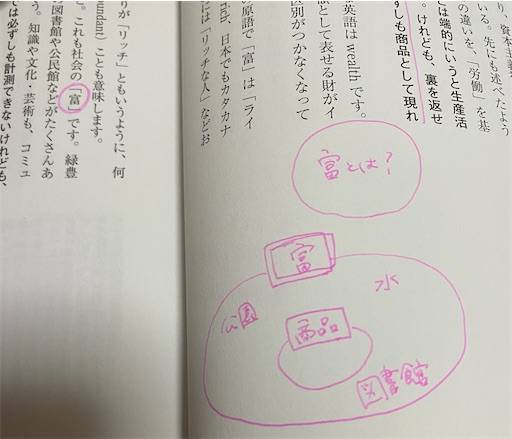 り、資本主義
いる。先にも述べたよう
の違いを、「労働」を基
とは端的にいうと生産活
。けれども、裏を返せ
ずしも商品として現れ
英語は wealth です。
として表せる財がイ
区別がつかなくなって
の原語で「富」は「ライ
日本でもカタカナ
には「リッチな人」などお
富とは？
富
水
公園
商品
図書館
りが「リッチ」ともいうように、何
undant）ことも意味します。
。これも社会の「富」です。緑豊
図書館や公民館などがたくさんあ
う。知識や文化・芸術も、コミュ
ては必ずしも計測できないけれども、